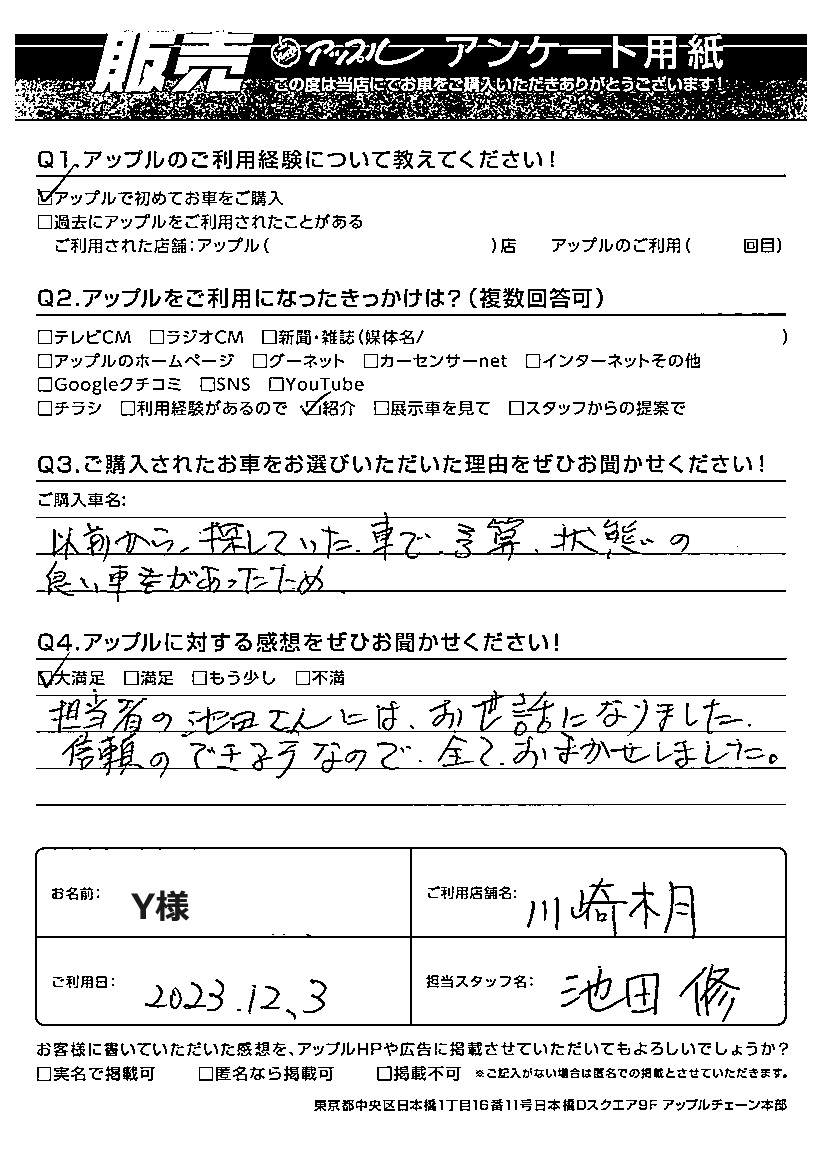 販売 アップル アンケート用紙
この度は当店にてお車をご購入いただきありがとうございます!
Q1.アップルのご利用経験について教えてください!
☑アップルで初めてお車をご購入
□過去にアップルをご利用されたことがある
ご利用された店舗:アップル( )店 アップルのご利用( 回目)
Q2.アップルをご利用になったきっかけは?(複数回答可)
□テレビCM □ラジオCM □新聞・雑誌(媒体名/ )
□アップルのホームページ □グーネット □カーセンサーnet □インターネットその他
□Googleクチコミ □SNS □YouTube
□チラシ □利用経験があるので ☑紹介 □展示車を見て □スタッフからの提案で
Q3.ご購入されたお車をお選びいただいた理由をぜひお聞かせください!
ご購入車名:
以前から、探していた、車で、予算、状態の
良い車があったため、
Q4.アップルに対する感想をぜひお聞かせください!
☑大満足 □満足 □もう少し □不満
担当者の池田さんには、お世話になりました。
信頼のできる方なので、全て、おまかせしました。
お名前: Y様 ご利用店舗名: 川崎木月
ご利用日: 2023.12.3 担当スタッフ名: 池田 修
お客様に書いていただいた感想を、アップルHPや広告に掲載させていただいてもよろしいでしょうか?
□実名で掲載可 □匿名なら掲載可 □掲載不可 ※ご記入がない場合は匿名での掲載とさせていただきます。
東京都中央区日本橋1丁目16番11号日本橋Dスクエア9F アップルチェーン本部